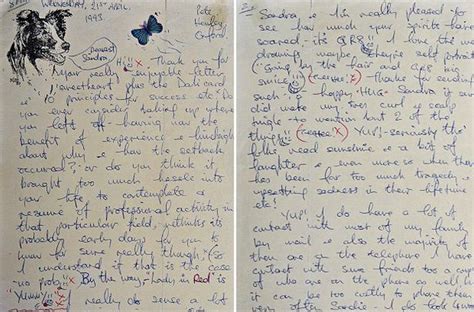 Wednesday, 21st April,
1993
Pete
Henley
Oxford
Dearest
Sandra,
Hi!! X Thank you for
your really enjoyable letter
sweetheart plus the Dad card
10 principles for success etc. Do
you ever consider taking up where
you left off - having had the
benefit of experience & hindsight
about why the setback
occured? or do you think it
brought too much hassle into
your life to contemplate a
resume of professional activity in
that particular field, withits its
probably early days for you to
know for sure really though. So
I understand if that is the case
no prob!! X By the way, Lady in Red is
"Yummy" X
really do sense a lot
Sandra & I'm really pleased to
see how much your spirits have
soared it's GRR!! I love the
drawing maybe
"Going by the fair and
X Thanks for sending
such a happy HUG. Sandra
did were my toes curl & scalp
tingle - to mention but 2 of the
things!! X YUP! seriously the
folks need sunshine & a bit of
laughter & even more so when there
has been far too much tragedy &
upsetting sadness in their lifetime
etc!
YUP! I do have a lot of
contact with most of my family
by mail & also the majority of
them are on the telephone I have
contact with some friends too a couple
of who are on the phone as well but
it can be too costly to phone them
very often Sandie - I do